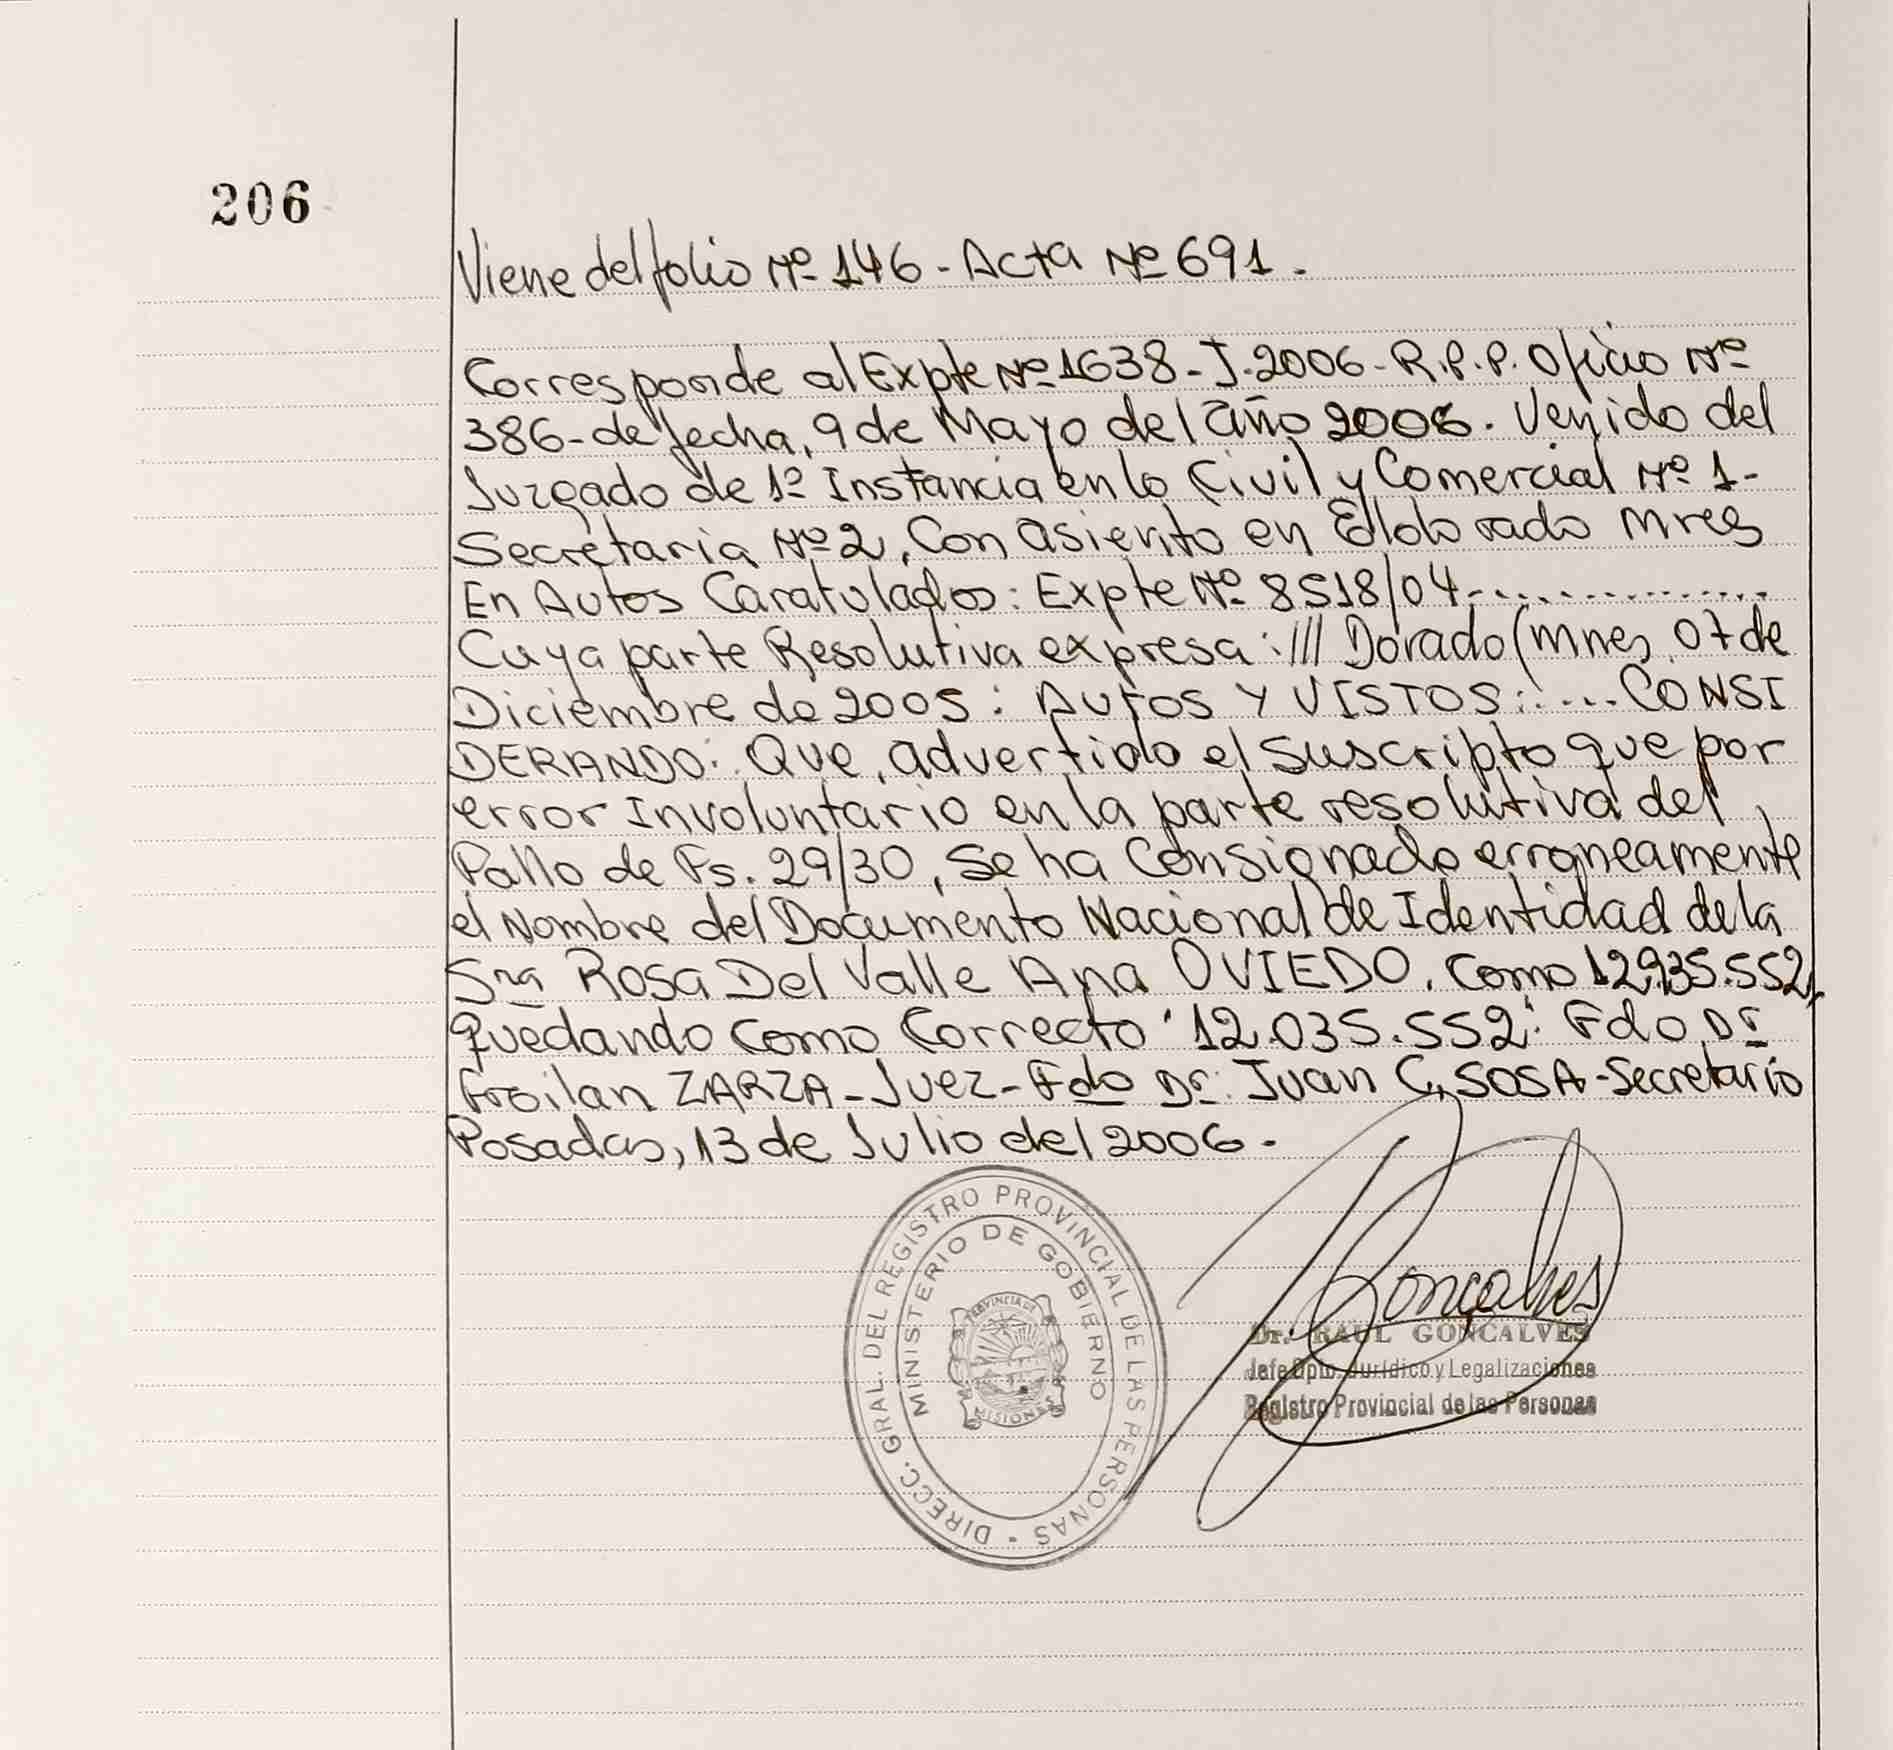 206
Viene del folio Nº 146 - Acta Nº 691.
Corresponde al Expte Nº 1638 - J. 2006 - R.P.P. Oficio Nº
386 - de fecha, 9 de Mayo del año 2006. Venido del
Juzgado de 1º Instancia en lo Civil y Comercial Nº 1 -
Secretaria Nº 2, Con asiento en Eldorado Mnes
En Autos Caratulados: Expte Nº 8518/04-..............
Cuya parte Resolutiva expresa: /// Dorado (Mnes, 07 de
Diciembre de 2005: AUTOS Y VISTOS:.... CONSI
DERANDO: Que, advertido el suscripto que por
error Involuntario en la parte resolutiva del
Fallo de Fs. 29/30, se ha Consignado erroneamente
el Nombre del Documento Nacional de Identidad de la
Sra ROSA Del Valle Ana OVIEDO. Como 12.935.552,
quedando como Correcto "12.035.552". Fdo Dr
Froilan ZARZA - Juez - Fdo Dr. Juan C. SOSA - Secretario
Posadas, 13 de Julio del 2006.
DIRECC. GRAL. DEL REGISTRO PROVINCIAL DE LAS PERSONAS
MINISTERIO DE GOBIERNO
PROVINCIA DE
MISIONES
Gonçalves
Dr. RAUL GONCALVES
Jefe Dpto. Jurídico y Legalizaciones
Registro Provincial de las Personas